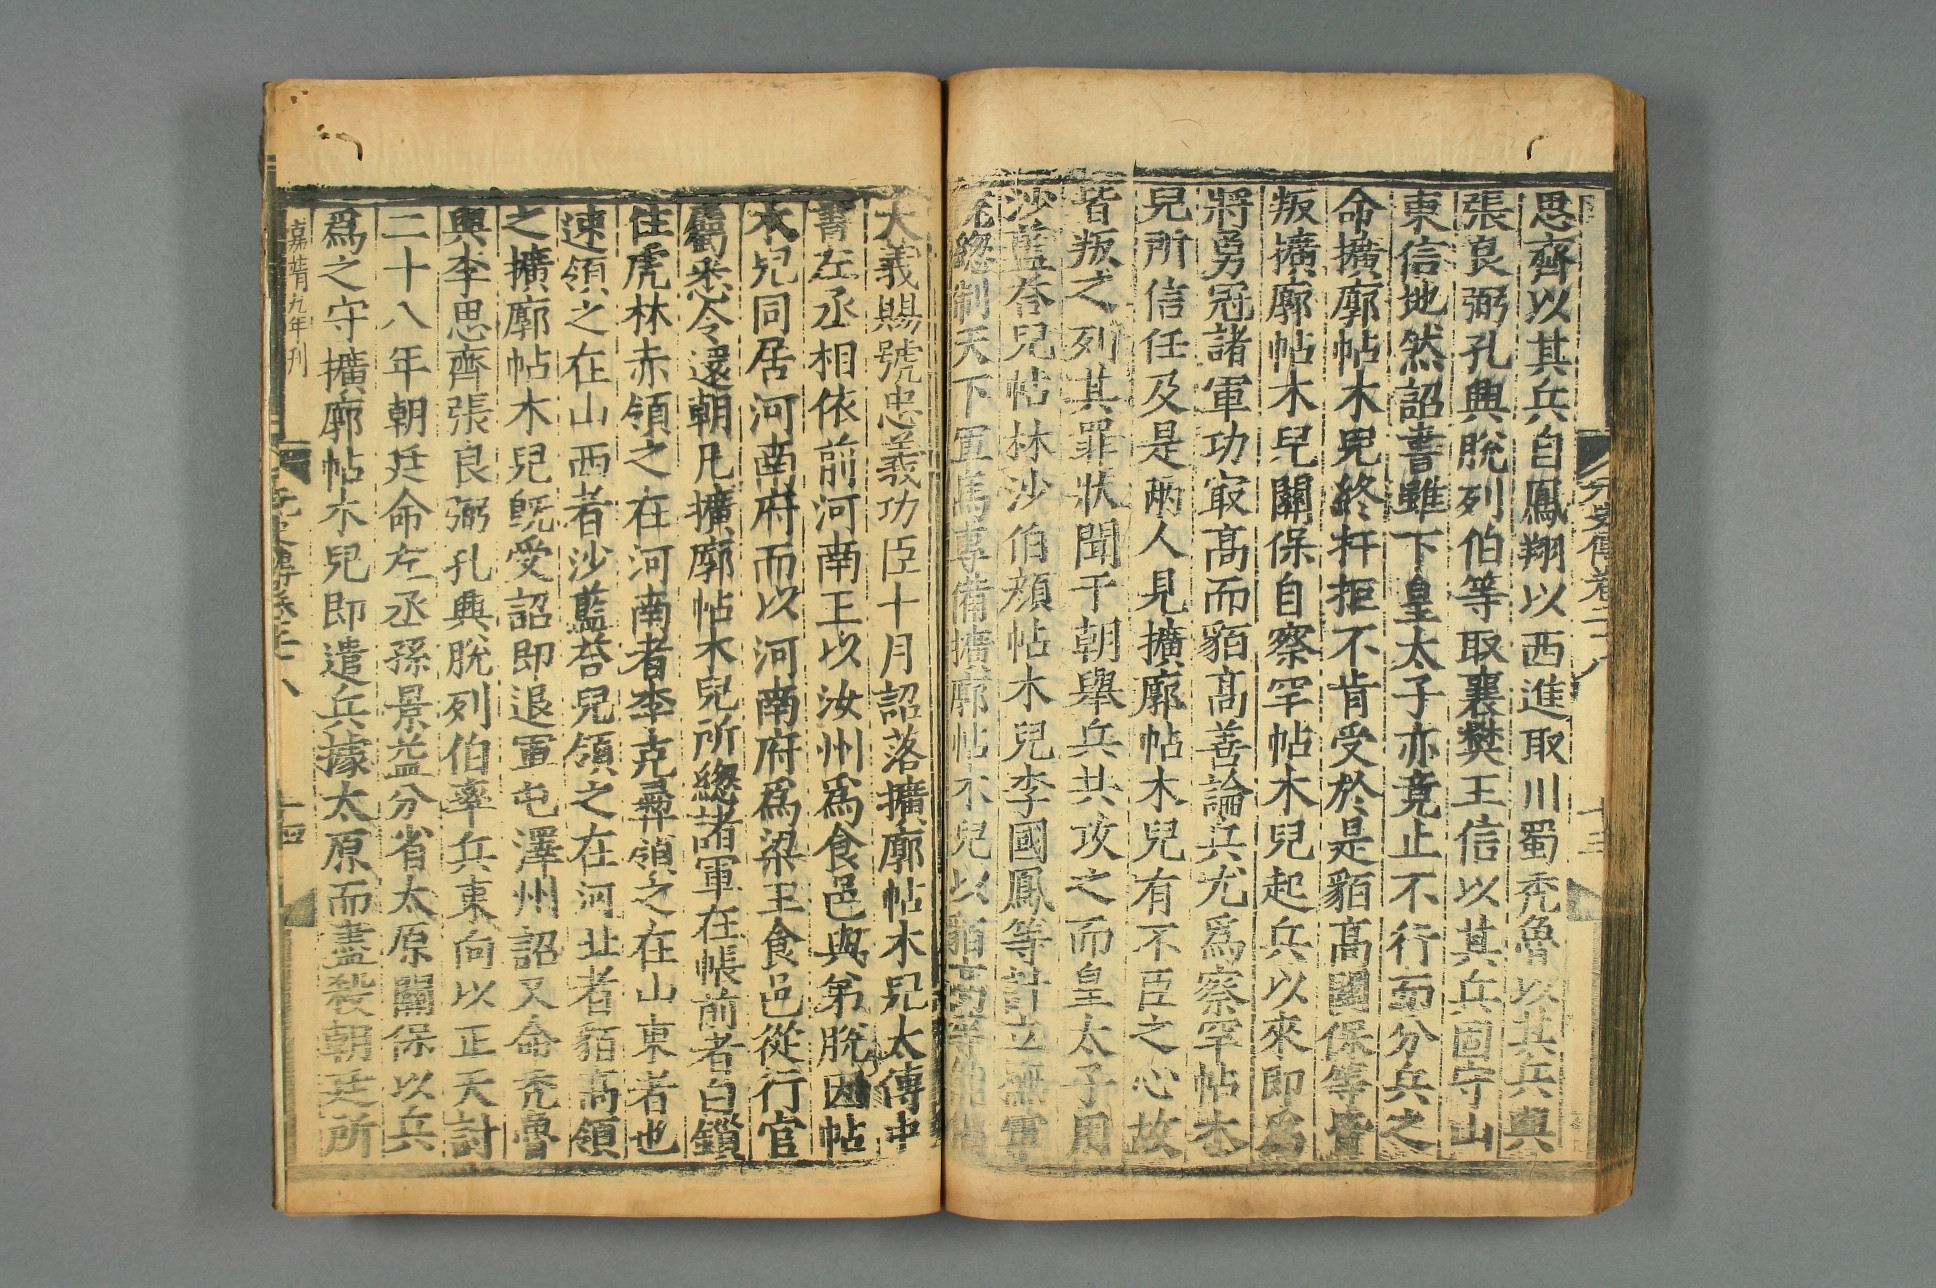 思齊以其兵自鳳翔以西進取川蜀禿魯以其兵與
張良弼孔興脫列伯等取襄樊王信以其兵固守山
東信地然詔書雖下皇太子亦竟止不行而分兵之
命擴廓帖木兒終扞拒不肯受於是貊高關保等皆
叛擴廓帖木兒關保自察罕帖木兒起兵以來即爲
將勇冠諸軍功冣髙而貊高善論兵尤爲察罕帖木
兒所信任及是兩人見擴廓帖木兒有不臣之心故
皆叛之列其罪狀聞于朝舉兵共攻之而皇太子用
沙藍荅兒帖林沙伯顔帖木兒李國鳳等計立撫軍
院緫制天下軍馬專備擴廓帖木兒以貊高等能倡
大義賜號忠義功臣十月詔落擴廓帖木兒太傅中
書左丞相依前河南王以汝州爲食邑與弟脫因帖
木兒同居河南府而以河南府爲梁王食邑從行官
屬悉令還朝凡擴廓帖木兒所緫諸軍在帳前者白鎖
住虎林赤領之在河南者李克彞領之在山東者也
速領之在山西者沙藍荅兒領之在河北者貊高領
之擴廓帖木兒旣受詔即退軍屯澤州詔又命禿魯
與李思齊張良弼孔興脫列伯率兵東向以正天討
二十八年朝廷命左丞孫景益分省太原關保以兵
爲之守擴廓帖木兒即遣兵據太原而盡殺朝廷所
元史傳卷二十八
十三
嘉靖九年刊
元史傳卷二十八
十四